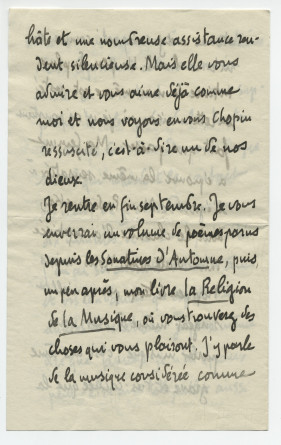 hâte et une nombreuse assistance ren-
dent silencieuse. Mais elle vous
admire et vous aime déjà comme
moi et nous voyons en vous Chopin
ressuscité, c'est-à-dire un de nos
dieux.
Je rentre en fin septembre. Je vous
enverrai un volume de poèmes parus
depuis les Sonatines d'Automne, puis,
un peu après, mon livre la Religion
de la Musique, où vous trouverez des
choses qui vous plairont. J'y parle
de la musique considérée comme